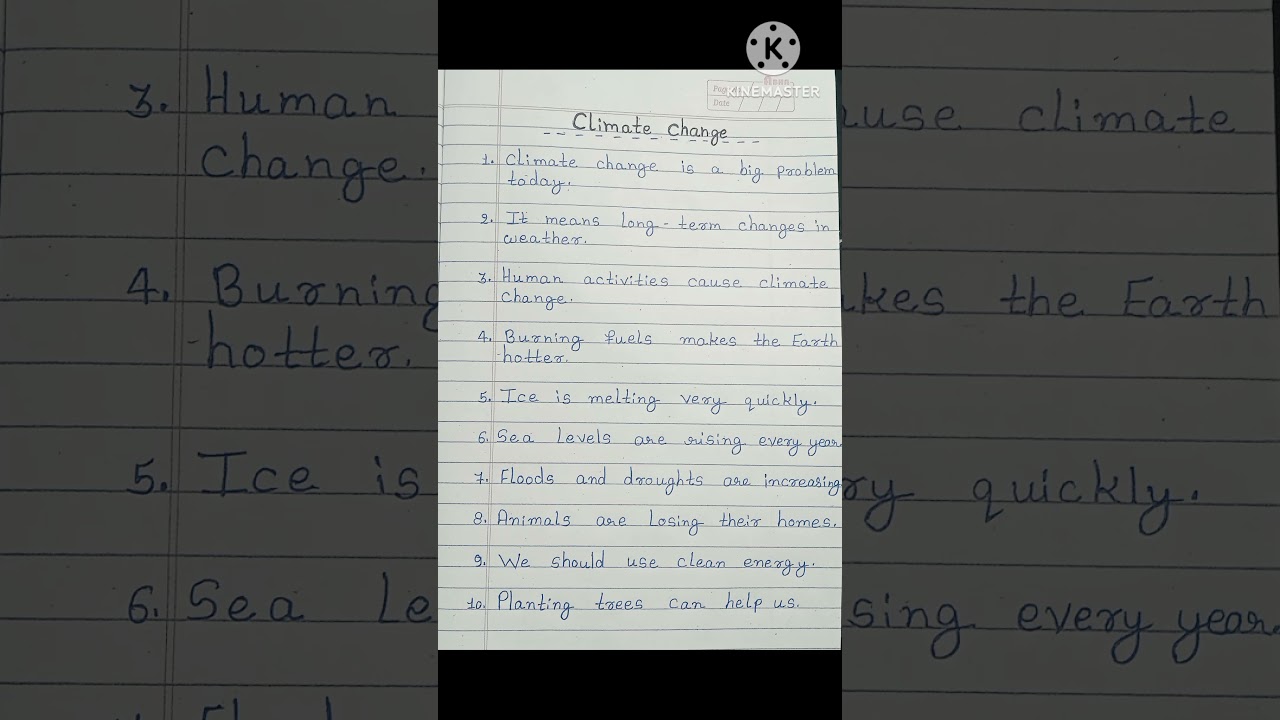 K
KINEMASTER
Date
Climate Change
1. Climate change is a big problem
today.
2. It means long-term changes in
weather.
3. Human activities cause climate
change.
4. Burning fuels makes the Earth
hotter.
5. Ice is melting very quickly.
6. Sea Levels are rising every year
7. Floods and droughts are increasing
8. Animals are Losing their homes.
9. We should use clean energy.
10. Planting trees can help us.
3. Human
change.
4. Burning
hotter.
5. Ice is
6. Sea Le
use climate
kes the Earth
ry quickly.
sing every year.